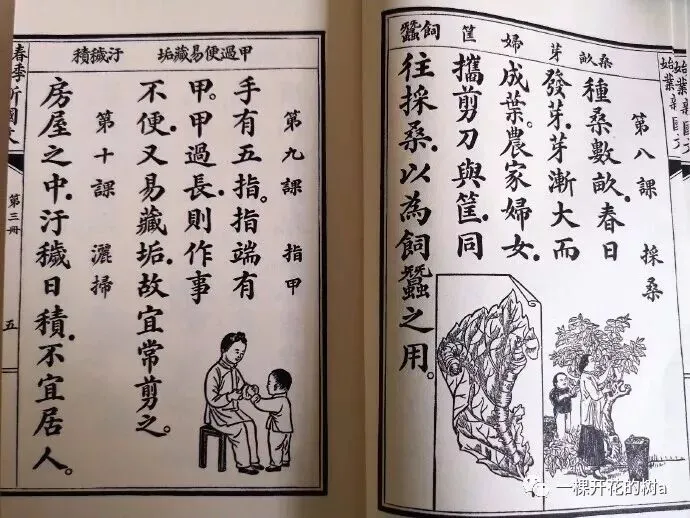 桑畝 芽 婦 筐 飼蠶
第八課 採桑
種桑數畝。春日
發芽。芽漸大而
成葉。農家婦女。
攜剪刀與筐。同
往採桑。以為飼蠶之用。
甲過便易藏垢 汙穢積
第九課 指甲
手有五指。指端有
甲。甲過長。則作事
不便。又易藏垢。故宜常剪之。
第十課 灑掃
房屋之中。汙穢日積。不宜居人。
春季新國文
第三冊
五
一棵开花的树a